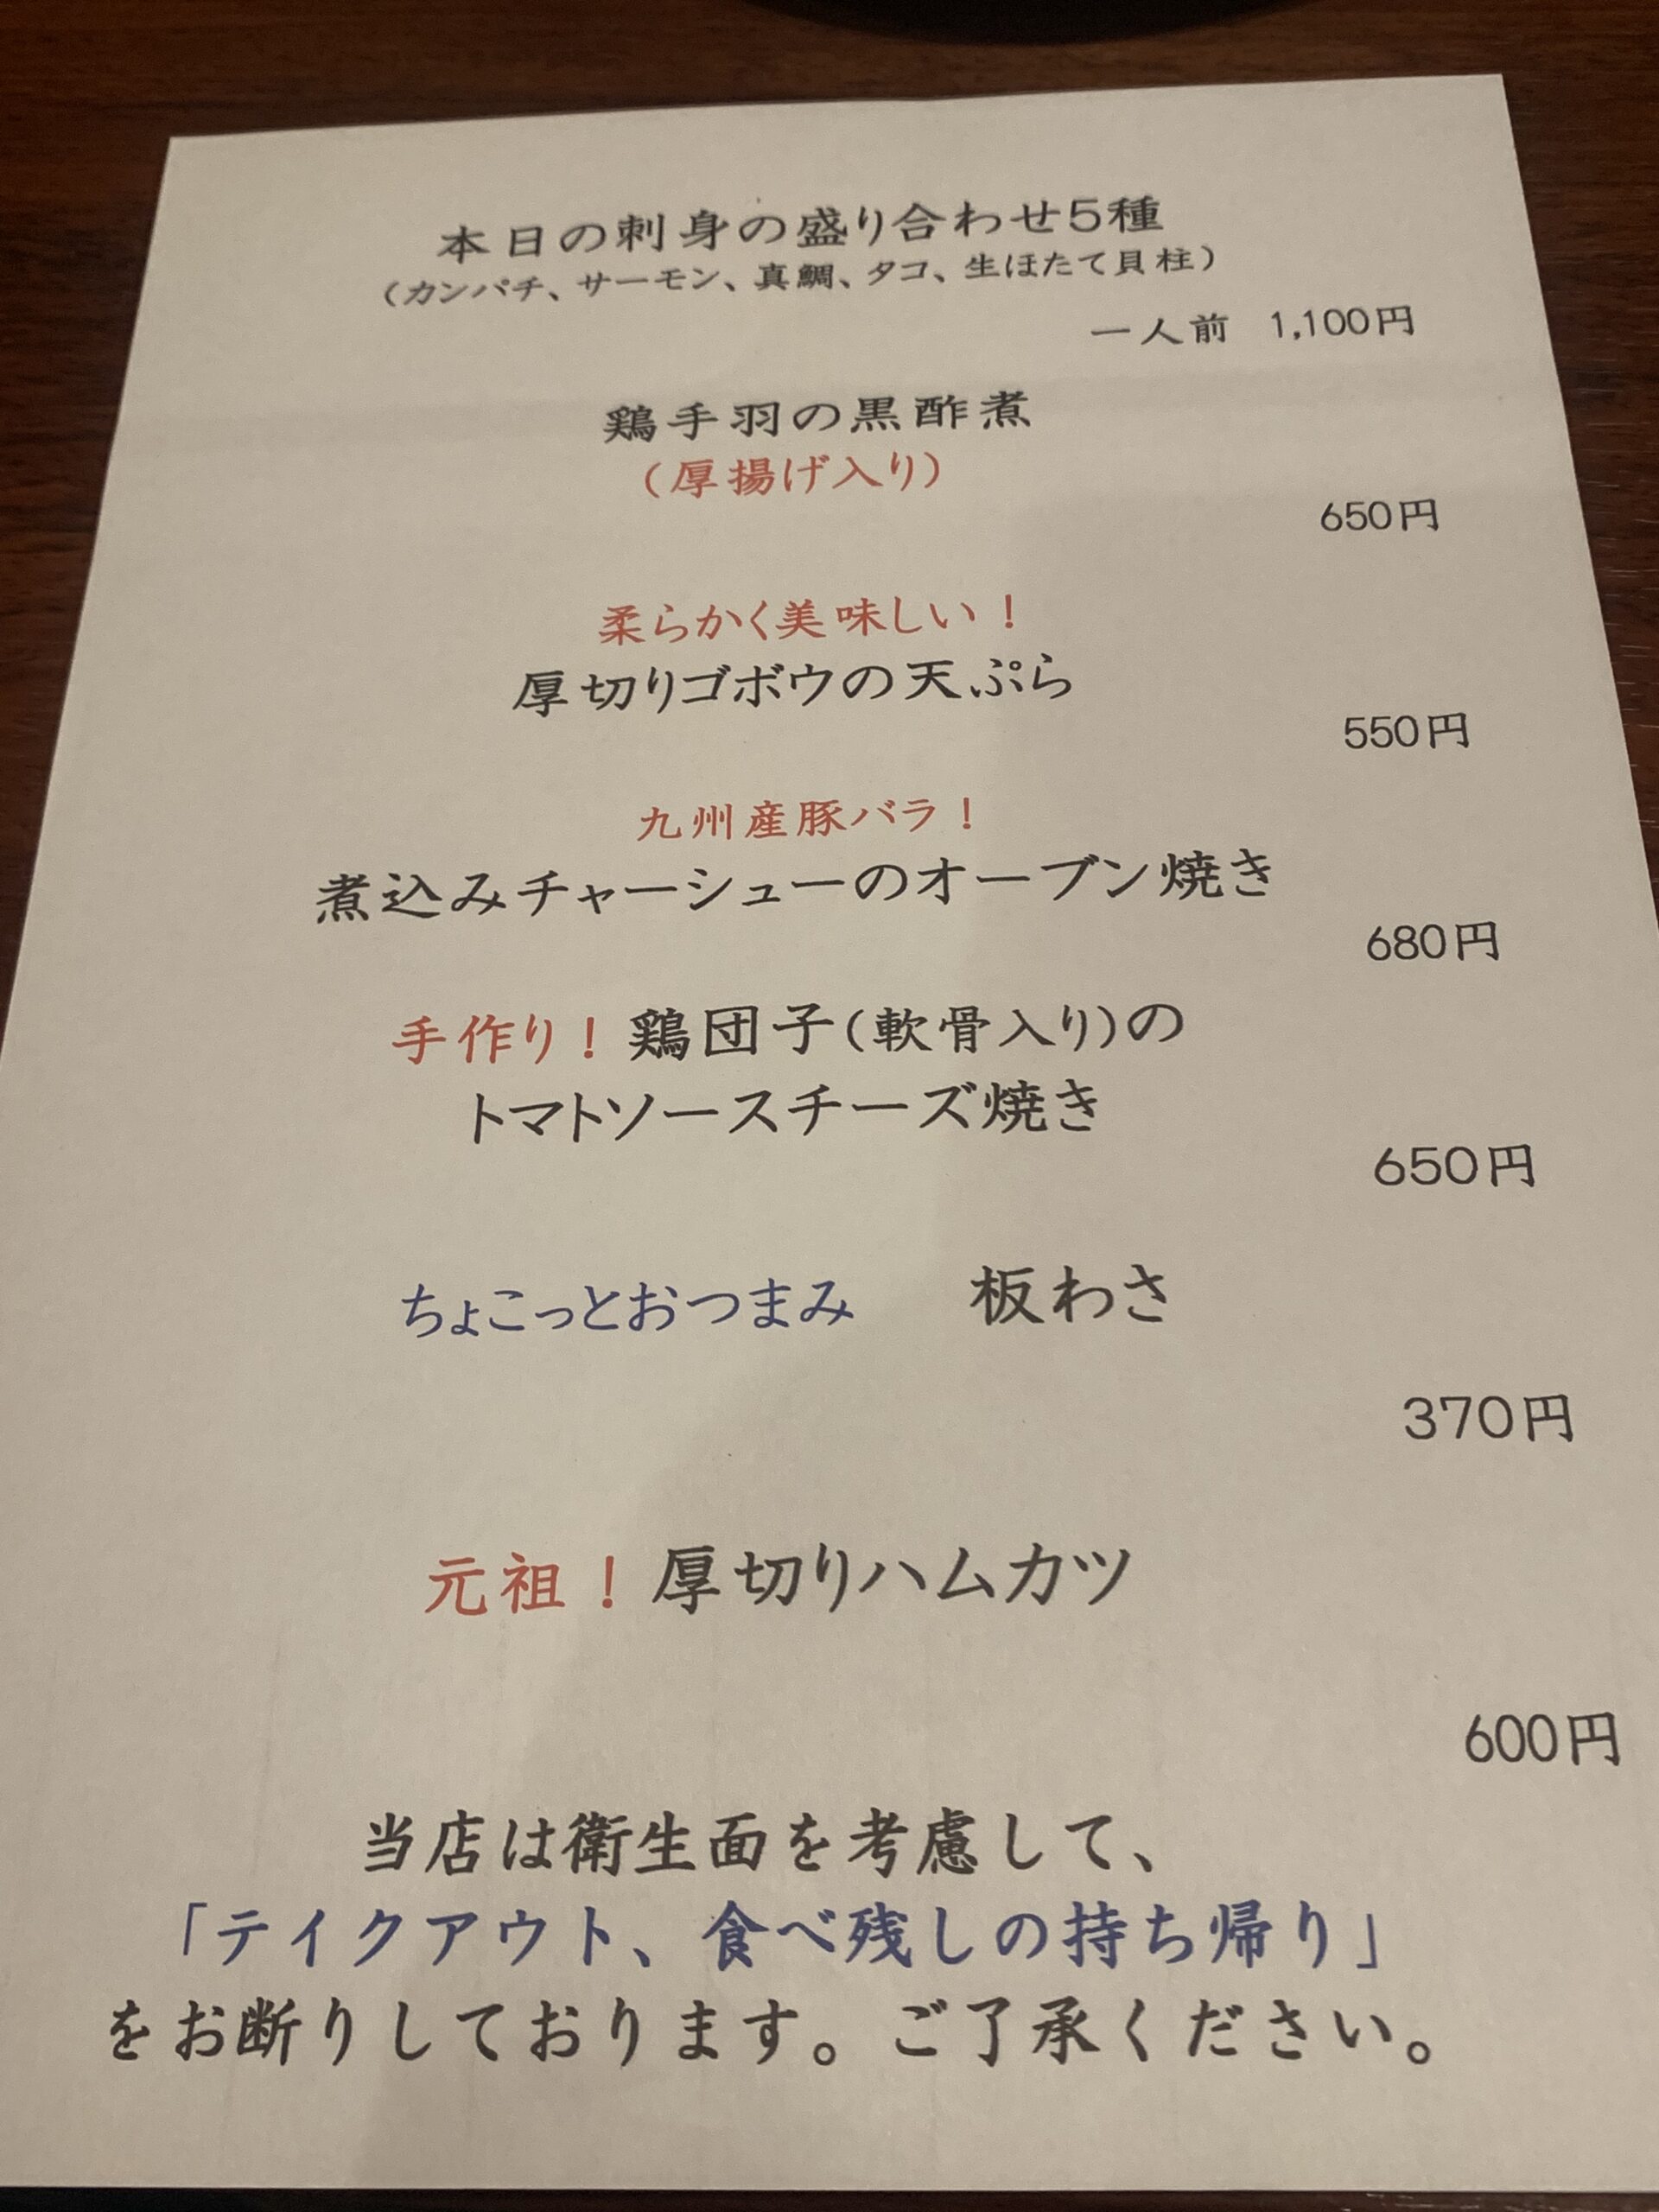 本日の刺身の盛り合わせ5種
（カンパチ、サーモン、真鯛、タコ、生ほたて貝柱）
一人前 1,100円
鶏手羽の黒酢煮
（厚揚げ入り）
650円
柔らかく美味しい！
厚切りゴボウの天ぷら
550円
九州産豚バラ！
煮込みチャーシューのオーブン焼き
680円
手作り！鶏団子（軟骨入り）の
トマトソースチーズ焼き
650円
ちょこっとおつまみ 板わさ
370円
元祖！厚切りハムカツ
600円
当店は衛生面を考慮して、
「テイクアウト、食べ残しの持ち帰り」
をお断りしております。ご了承ください。